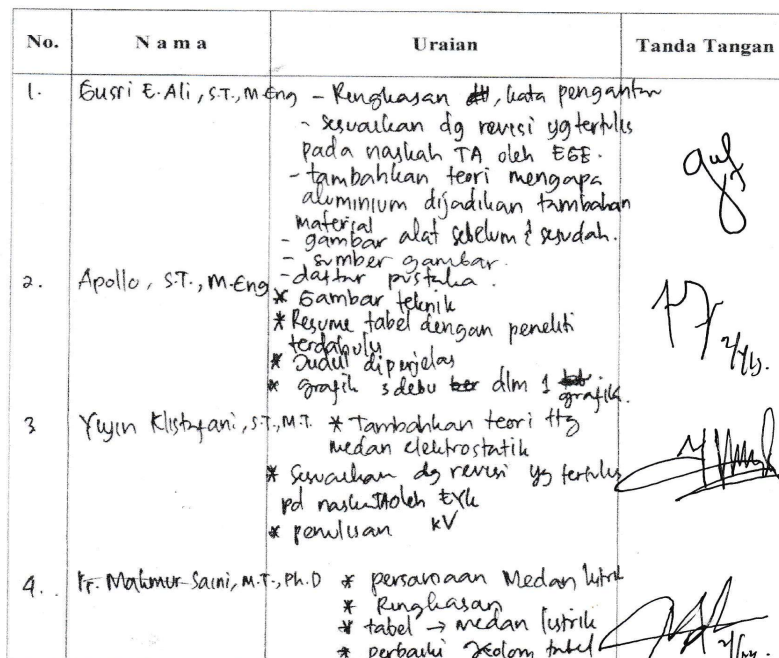 No. N a m a Uraian Tanda Tangan
1. Gusri E. Ali, S.T., M.Eng - Ringkasan, kata pengantar
- sesuaikan dg revisi yg tertulis
pada naskah TA oleh EGE.
- tambahkan teori mengapa
aluminium dijadikan tambahan
material
- gambar alat sebelum & sesudah.
- sumber gambar.
2. Apollo, S.T., M.Eng - daftar pustaka.
* Gambar teknik
* Resume tabel dengan peneliti
terdahulu
* Judul diperjelas
* grafik 3 debu dlm 1 grafik.
3 Yuyin Klistafani, S.T., M.T. * Tambahkan teori ttg
medan elektrostatik
* Sesuaikan dg revisi yg tertulis
pd naskah TA oleh EYK
* penulisan kV
4. Ir. Makmur Saini, M.T., Ph.D * persamaan Medan listrik
* Ringkasan
* tabel → medan listrik
* perbaiki kolom tabel